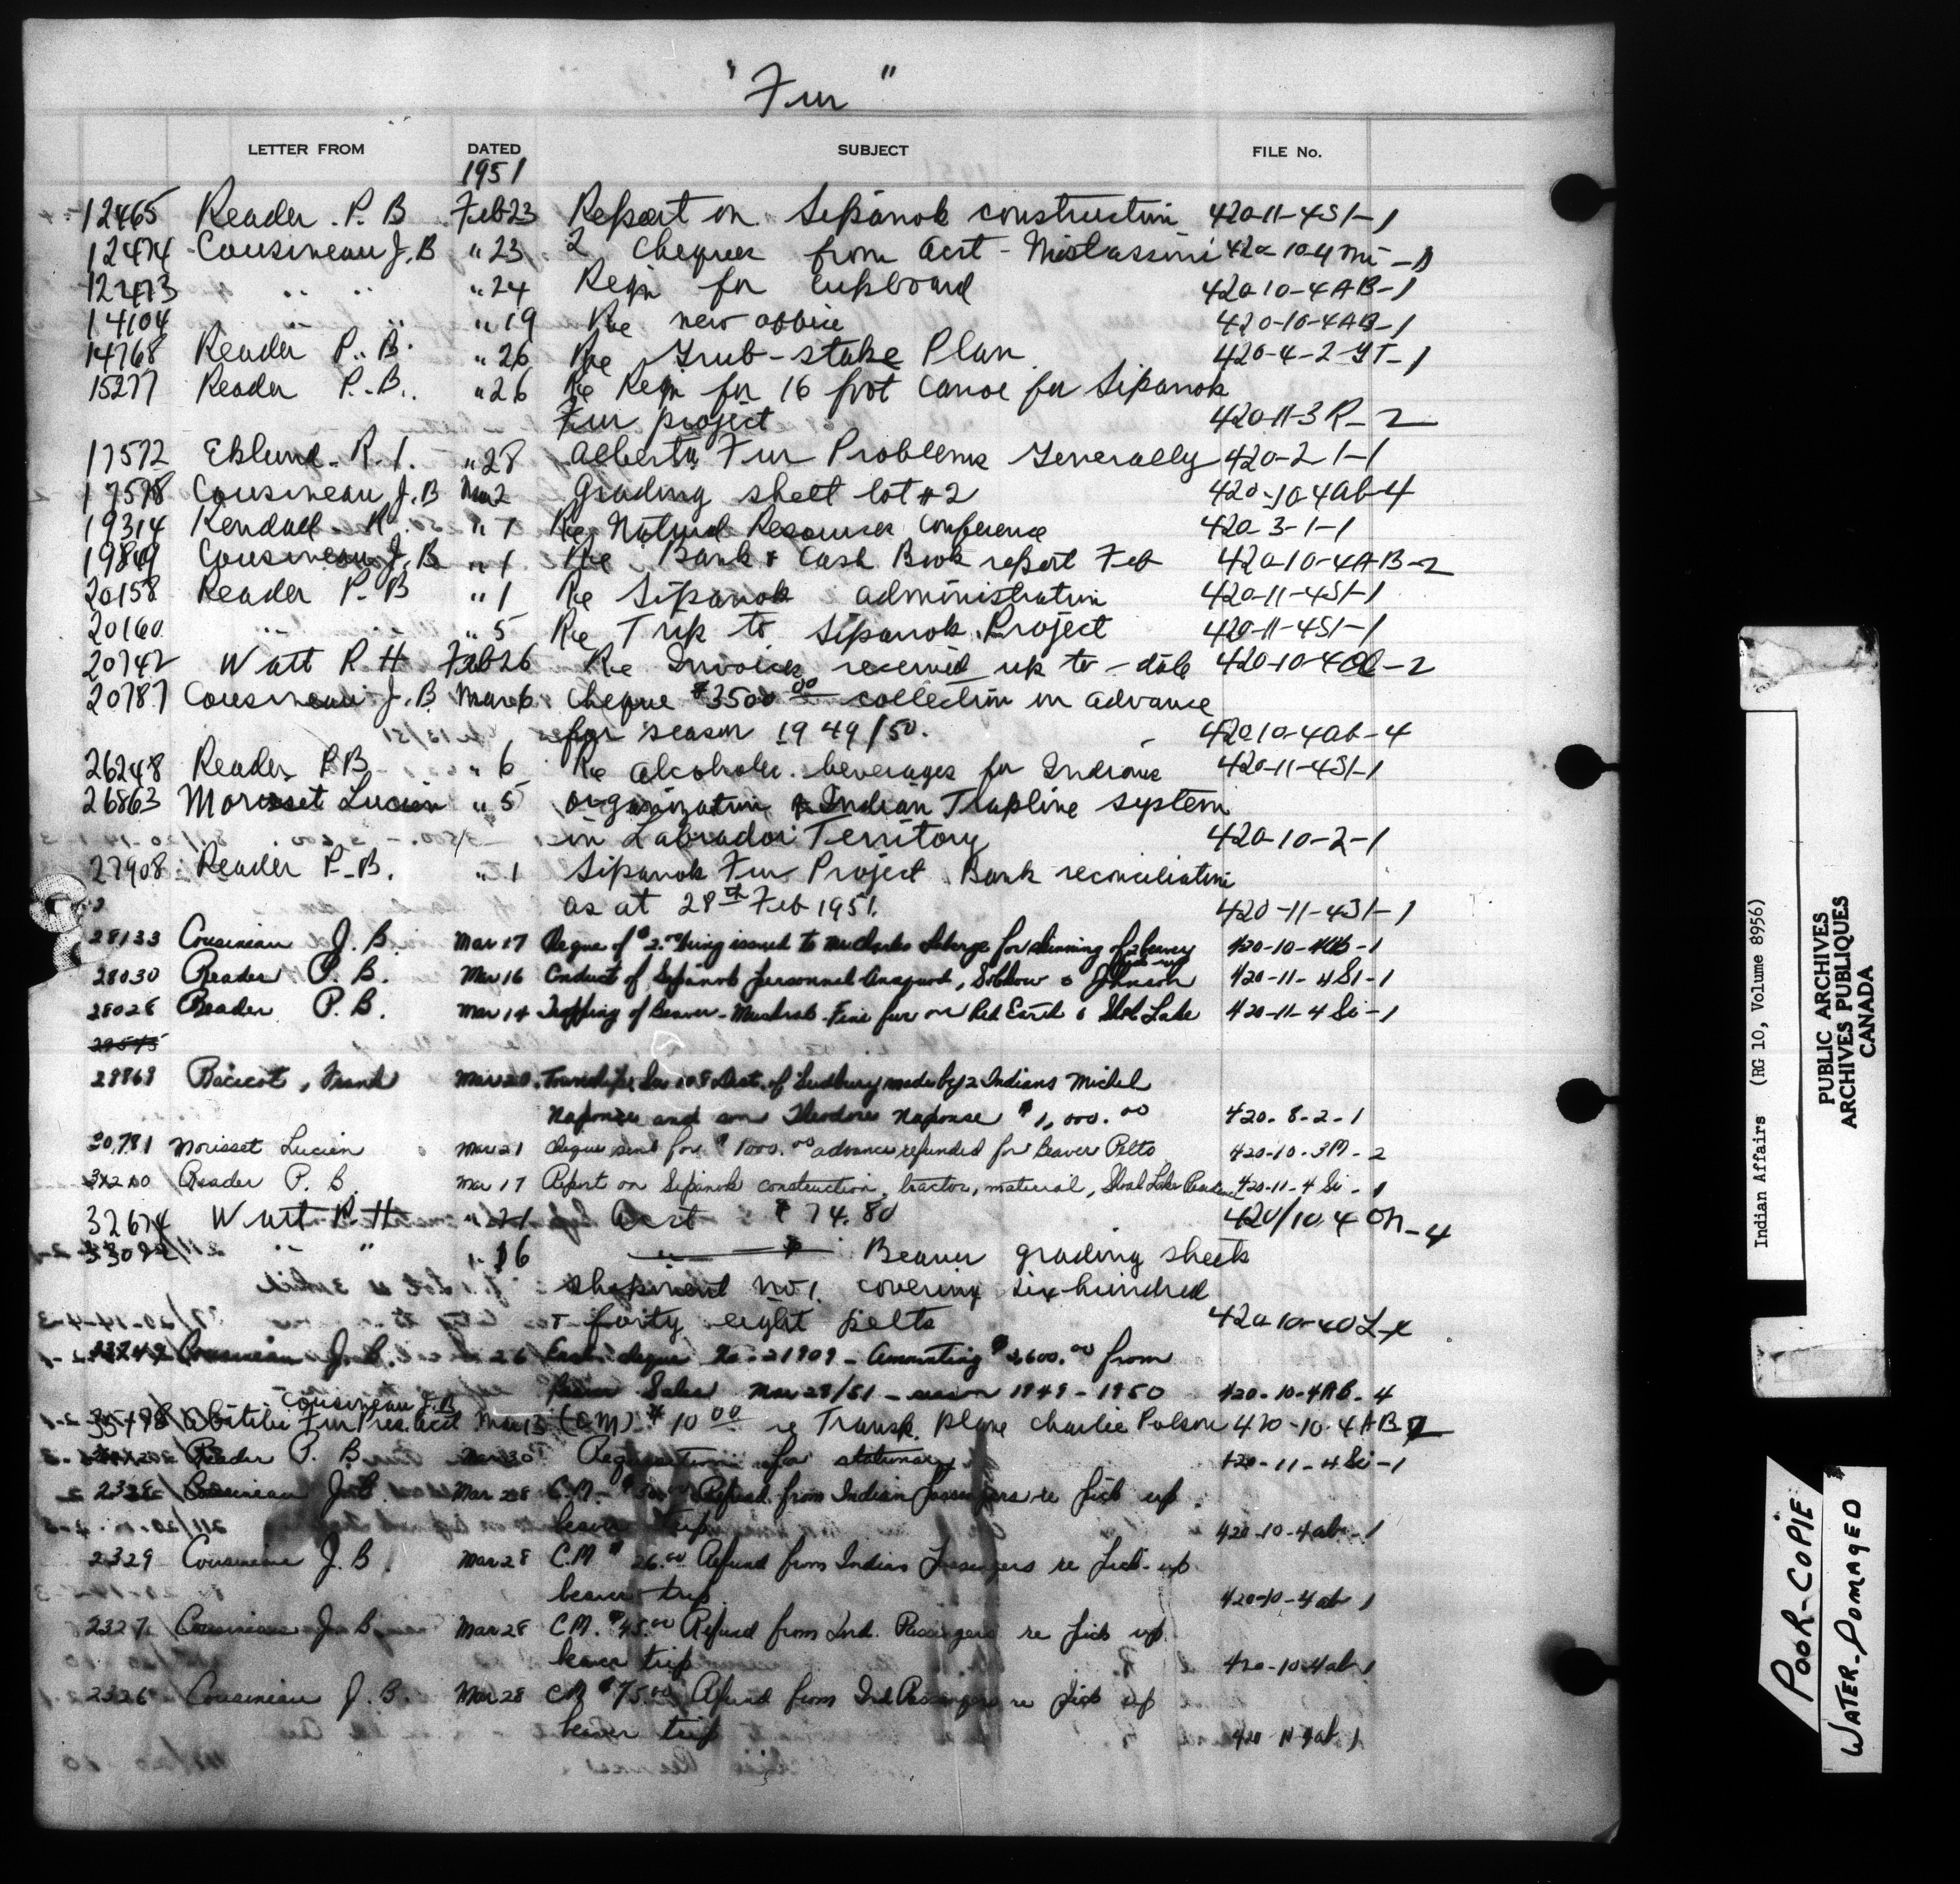 "Fur"
LETTER FROM DATED SUBJECT FILE No.
1951
12465 Reader. P. B Feb 23 Report on Sipanok construction 420-11-4SI-1
12474 Cousineau J. B " 23 2 Cheques from acct - Mistassini 420-10-4 mi-1
12473 " " " 24 Reqn for cupboard 420 10-4AB-1
14104 " " " 19 Re new office 420-10-4AB-1
14768 Reader P. B. " 26 Re Grub-stake Plan 420-4-2-GT-1
15277 Reader P.B. " 26 Re Reqn for 16 foot Canoe for Sipanok
Fur project 420-11-3R-2
17572 Eklund. R. I. " 28 Alberta Fur Problems Generally 420-2-1-1
17578 Cousineau J. B Mar 2 Grading sheet lot #2 420-10-4ab-4
19314 Kendall R. " 1 Re Natural Resources Conference 420-3-1-1
19849 Cousineau J. B " 1 Re Bank & Cash Book report Feb 420-10-4AB-2
20158 Reader P. B " 1 Re Sipanok administration 420-11-4SI-1
20160 " " " 5 Re Trip to Sipanok Project 420-11-4SI-1
20742 Watt R H Feb 26 Re Invoices received up to - date 420-10-4 -2
20787 Cousineau J. B. Mar 6 Cheque $3500.00 collection in advance
for season 1949/50. 420 10-4ab-4
26248 Reader P B " 6 Re Alcoholic beverages for Indians 420-11-4SI-1
26863 Morisset Lucien " 5 Organization Indian Trapline system
in Labrador Territory 420-10-2-1
27908 Reader P-B. " 1 Sipanok Fur Project Bank reconciliation
as at 28th Feb 1951. 420-11-4SI-1
28133 Cousineau J. B. Mar 17 Cheque of $2.00 being issued to Mr Charles Laberge for skinning of 2 beaver 420-10-4ab-1
28030 Reader P. B. Mar 16 Conduct of Sipanok personnel , & Johnson 420-11-4SI-1
28028 Reader P. B. Mar 14 Trapping of Beaver - Muskrat - Fine fur on Red Earth & Shoal Lake 420-11-4 Si-1
29575
29869 , Frank Mar 20. Township 108 Dist. of Sudbury made by 2 Indians Michel
Naponse and son Theodore Naponse $1,000.00 420-8-2-1
30781 Morisset Lucien Mar 21 Cheque sent for $1000.00 advance refunded for Beaver Pelts 420-10-3M-2
Reader P. B. Mar 17 Report on Sipanok construction, tractor, material, Shoal Lake 420-11-4 Si-1
32674 Watt R. H " 21 Acct $74.80 420/10.4 On-4
33092 " " " 16 Beaver grading sheets
shipment No 1. covering six hundred
& forty eight pelts 420-10-4
Cousineau J. B. " 26 cheque No. 21909 - Amounting $2600.00 from
Beaver Sales Mar 28/51 - season 1949-1950 420-10-4AB-4
Cousineau J. B
35498 Abitibi Fur Pres. acct Mar 13 (C.M) $10.00 re Transp. plane Charlie Polson 420-10-4AB-2
Reader P. B. Mar 30 Requisition for stationary 420-11-4Si-1
2328 Cousineau J. B. Mar 28 C.M. - $ Refund from Indian passengers re pick up
beaver trip 420-10-4ab-1
2329 Cousineau J. B Mar 28 C.M. $26.00 Refund from Indian Passengers re pick-up
beaver trip 420-10-4ab-1
2327 Cousineau J. B. Mar 28 C.M. $45.00 Refund from Ind. Passengers re pick up
beaver trip 420-10-4ab-1
2326 Cousineau J. B. Mar 28 C.M $75.00 Refund from Ind Passengers re pick up
beaver trip 420-10-4ab-1
Indian Affairs (RG 10, Volume 8956)
PUBLIC ARCHIVES
ARCHIVES PUBLIQUES
CANADA
POOR-COPIE
WATER-DOMAGED